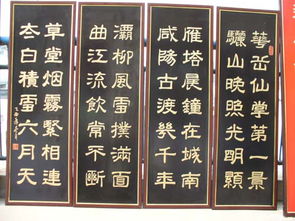 華岳仙掌第一景
驪山晚照光明顯
雁塔晨鐘在城南
咸陽古渡幾千年
灞柳風雪撲滿面
曲江流飲常不斷
草堂烟霧緊相連
太白積雪六月天